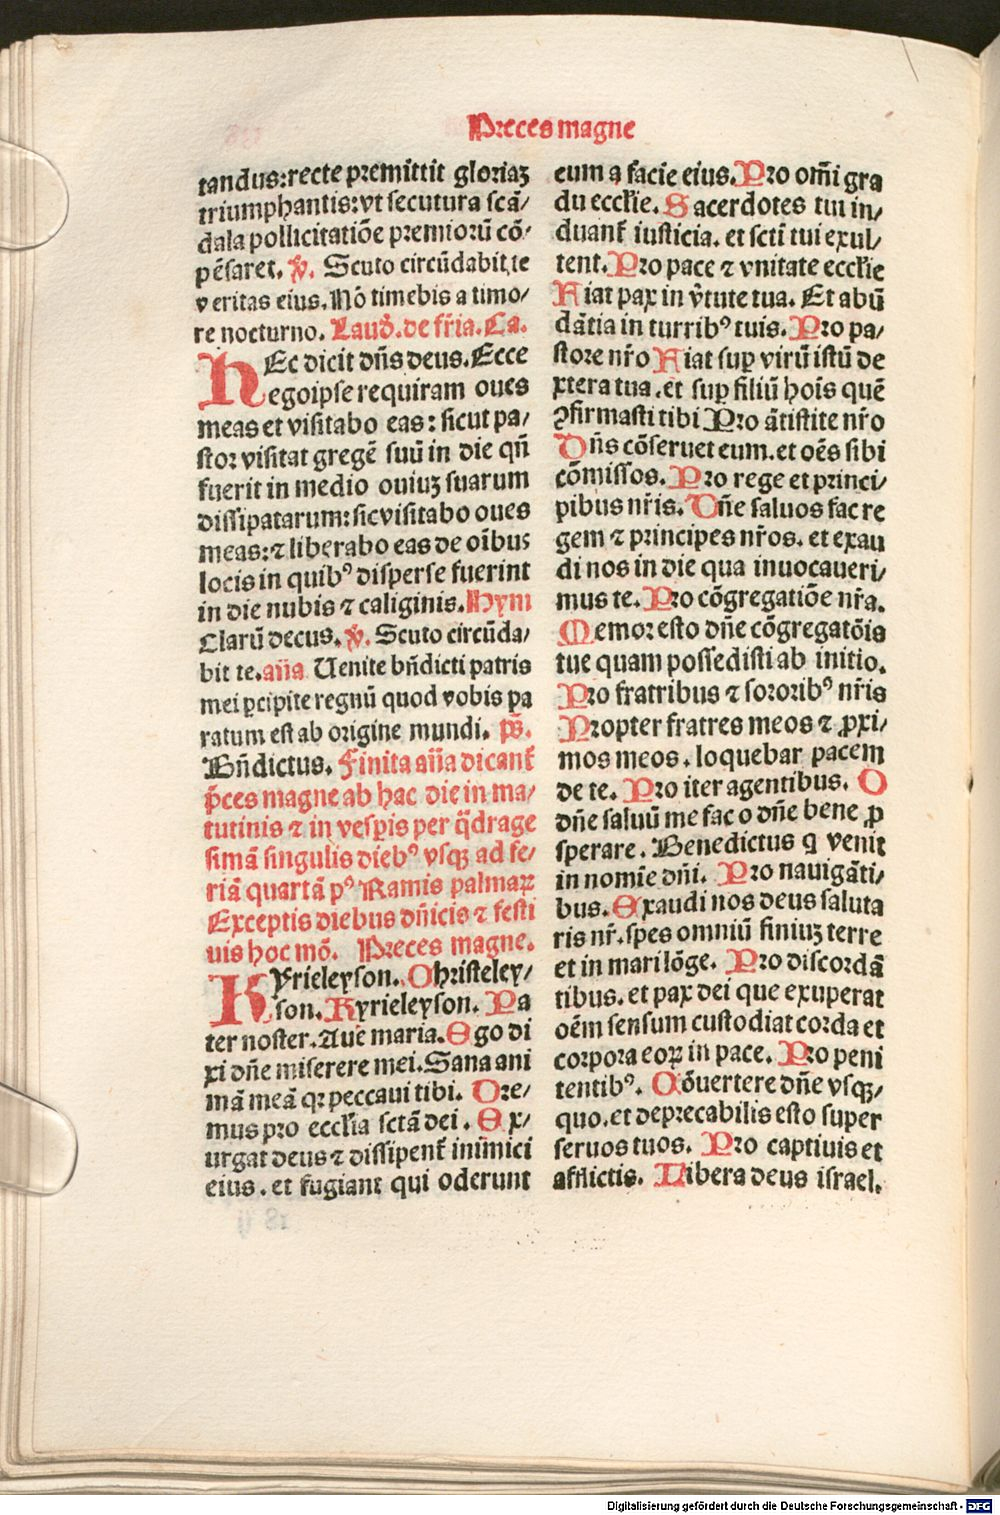 Preces magne
tandus:recte premittit gloriaꝫ
triumphantis:vt secutura scā/
dala pollicitatiōe premiorū cō/
pēsaret. ꝟ. Scuto circūdabit te
veritas eius. Nō timebis a timo/
re nocturno. Laud̛. de fr̄ia. Ca.
HEc dicit dn̄s deus. Ecce
egoipse requiram oues
meas et visitabo eas: sicut pa/
stor visitat gregē suū in die qn̄
fuerit in medio ouiuꝫ suarum
dissipatarum: sicvisitabo oues
meas: ⁊ liberabo eas de oībus
locis in quibꝰ disperse fuerint
in die nubis ⁊ caliginis. Hym
Clarū decus. ꝟ. Scuto circūda/
bit te. an̄a Uenite bn̄dicti patris
mei ꝑcipite regnū quod vobis pa
ratum est ab origine mundi. ps̄.
Bn̄dictus. Finita an̄a dicant̄
p̄ces magne ab hac die in ma/
tutinis ⁊ in vesꝑis per q̄drage
simā singulis diebꝰ vsqꝫ ad fe/
riā quartā pꝰ Ramis palmaꝝ
Exceptis diebus dn̄icis ⁊ festi
uis hoc mō. Preces magne.
KYrieleyson. Christeley/
son. Kyrieleyson. Pa
ter noster. Aue maria. Ego di
xi dn̄e miserere mei. Sana ani
mā meā qꝛ peccaui tibi. Ore/
mus pro eccl̄ia sctā dei. Ex/
urgat deus ⁊ dissipent̄ inimici
eius. et fugiant qui oderunt
eum a facie eius. Pro om̄i gra
du eccl̄ie. Sacerdotes tui in/
duant̄ iusticia. et scti tui exul/
tent. Pro pace ⁊ vnitate eccl̄ie
Fiat pax in v̄tute tua. Et abū
dātia in turribꝰ tuis. Pro pa/
store nr̄o Fiat suꝑ virū istū de
xtera tua. et suꝑ filiū hoīs quē
ꝯfirmasti tibi Pro ātistite nr̄o
Dn̄s cōseruet eum. et oēs sibi
cōmissos. Pro rege et princi/
pibus nr̄is. Dn̄e saluos fac re
gem ⁊ principes nr̄os. et exau
di nos in die qua inuocaueri/
mus te. Pro cōgregatiōe nr̄a.
Memor esto dn̄e cōgregatōis
tue quam possedisti ab initio.
Pro fratribus ⁊ sororibꝰ nr̄is
Propter fratres meos ⁊ ꝓxi/
mos meos. loquebar pacem
de te. Pro iter agentibus. O
dn̄e saluū me fac o dn̄e bene ꝓ
sperare. Benedictus q venit
in nomīe dn̄i. Pro nauigāti/
bus. Exaudi nos deus saluta
ris nr̄. spes omniū finiuꝫ terre
et in mari lōge. Pro discordā
tibus. et pax dei que exuperat
oēm sensum custodiat corda et
corpora eoꝝ in pace. Pro peni
tentibꝰ. Cōuertere dn̄e vsqꝫ/
quo. et deprecabilis esto super
seruos tuos. Pro captiuis et
afflictis. Libera deus israel.
Digitalisierung gefördert durch die Deutsche Forschungsgemeinschaft - DFG